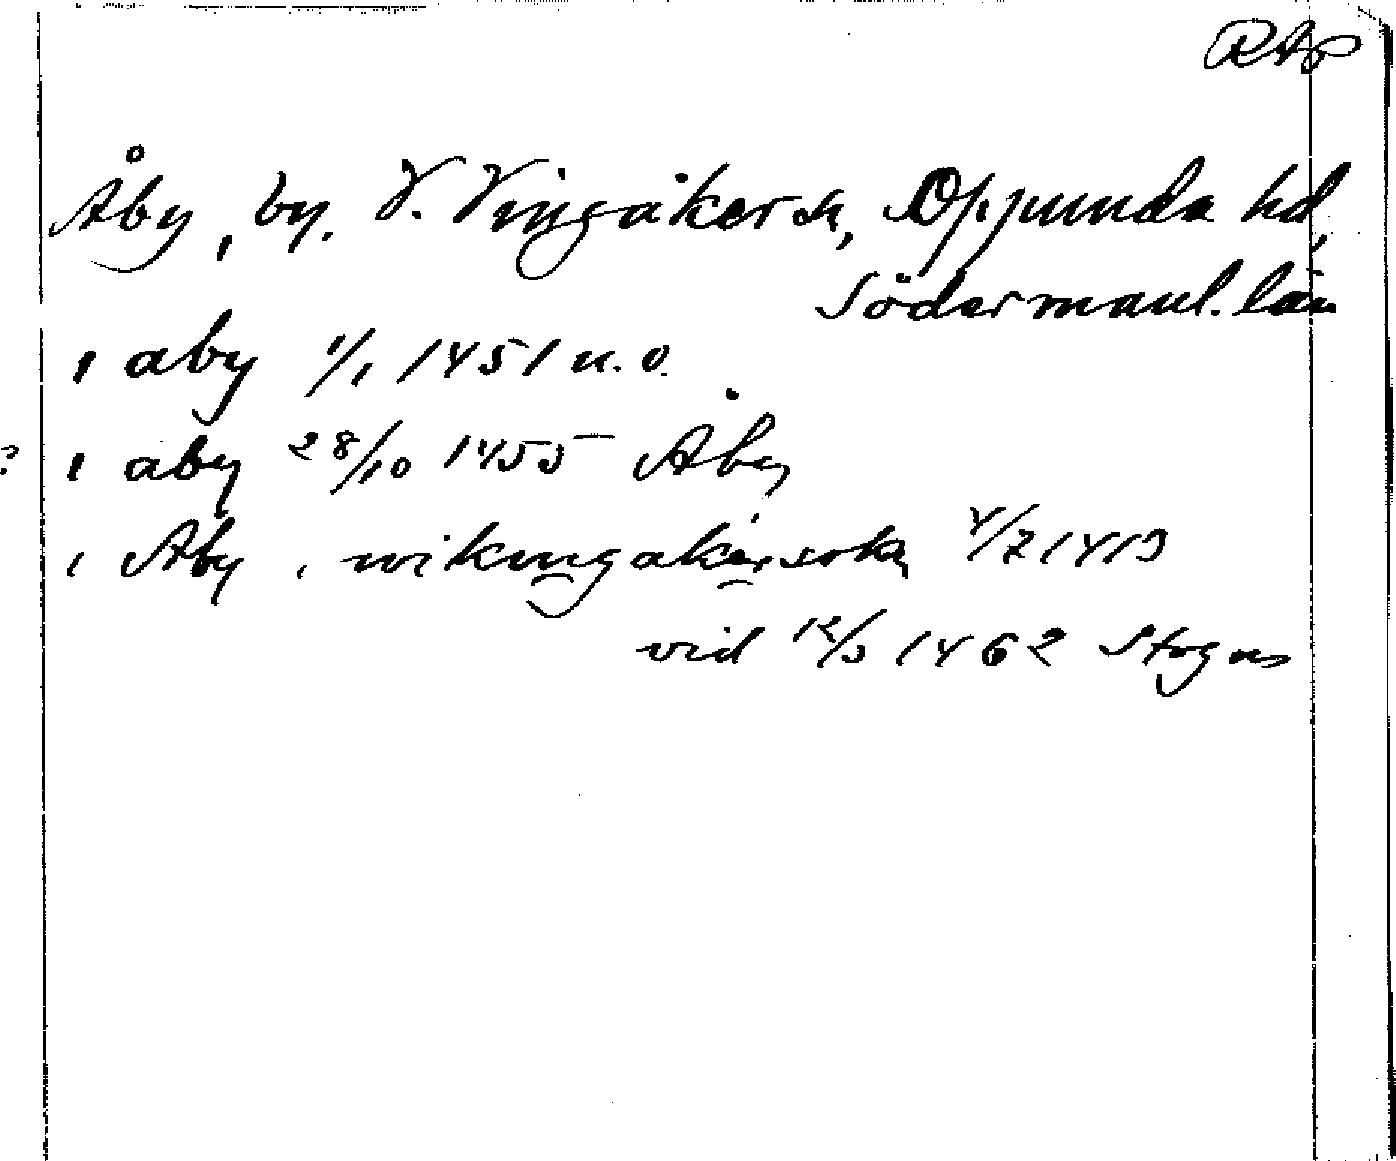 RAp
Åby, by. V. Vingåkers sn, Oppunda hd,
Södermanl. län
i aby 1/1 1451 u. o.
? i aby 28/10 1455 Åby
i Aby i wikingakersokn 4/7 1413
vid 12/3 1462